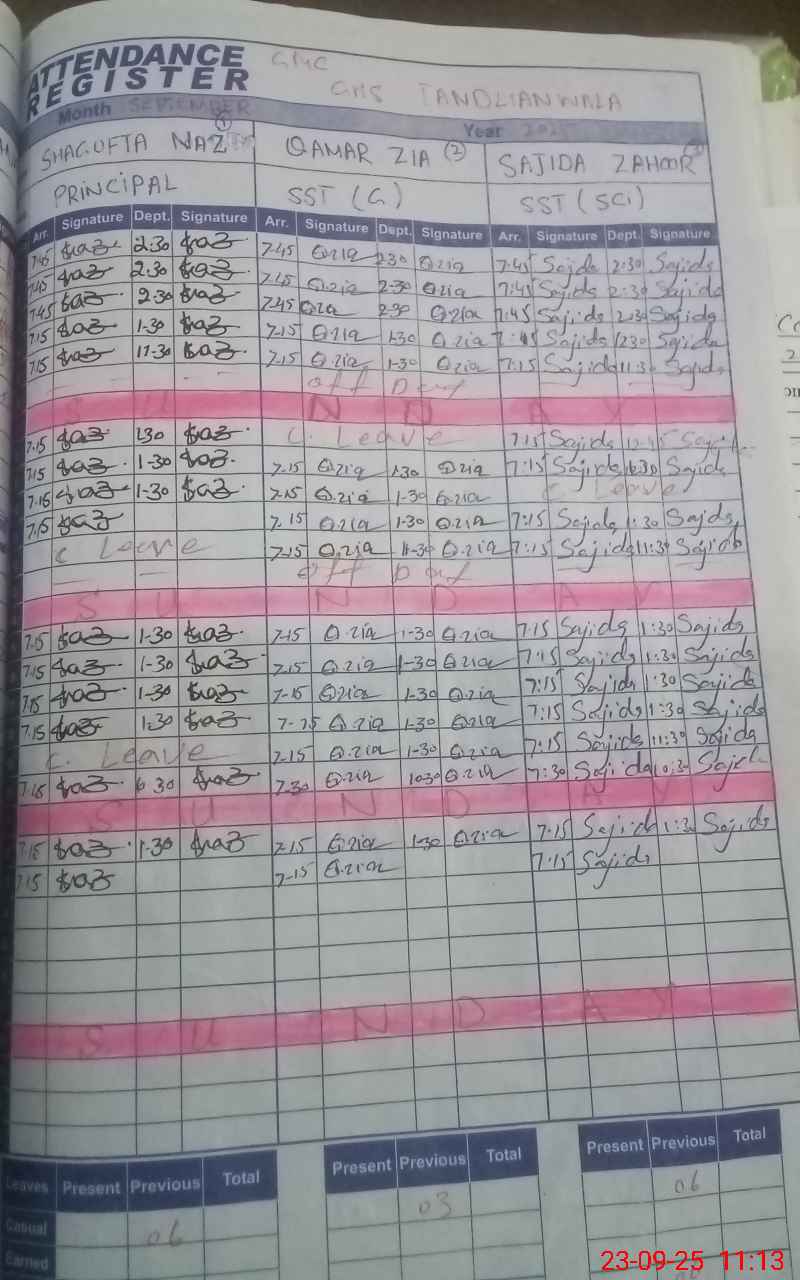 ATTENDANCE
REGISTER
GMC
GHS TANDLIANWALA
Month SEPTEMBER Year 2025
SHAGUFTA NAZ ① QAMAR ZIA ② SAJIDA ZAHOOR
PRINCIPAL SST (G) SST (SCi)
Arr. Signature Dept. Signature Arr. Signature Dept. Signature Arr. Signature Dept. Signature
7.45 2.30 7.45 Q.zia 2.30 Q.zia 7:45 Sajida 2:30 Sajida
7.45 2.30 7.45 Q.zia 2.30 Q.zia 7:45 Sajida 2:30 Sajida
7.45 2.30 7.45 Q.zia 2.30 Q.zia 7:45 Sajida 2:30 Sajida
7.15 1-30 7.15 Q.zia 1.30 Q.zia Sajida Sajida
7.15 11-30 7.15 Q.zia 1-30 Q.zia 7:15 Sajida 11:30 Sajida
off Day
S U N D A Y
7.15 1.30 C. Leave 7:15 Sajida 12:45
7.15 1-30 7-15 Q.zia 1.30 Q.zia 7:15 Sajida 1:30 Sajida
7.15 1-30 7.15 Q.zia 1-30 Q.zia C Leave
7.15 7.15 Q.zia 1-30 Q.zia 7:15 Sajida 1:30 Sajida
C Leave 7-15 Q.zia 11-30 Q.zia 7:15 Sajida 11:30 Sajida
off Day
S U N D A Y
7.15 1-30 7-15 Q.zia 1-30 Q.zia 7:15 Sajida 1:30 Sajida
7.15 1-30 7-15 Q.zia 1-30 Q.zia 7:15 Sajida 1:30 Sajida
7.15 1-30 7-15 Q.zia 1-30 Q.zia 7:15 Sajida 1:30 Sajida
7.15 1.30 7-15 Q.zia 1-30 Q.zia 7:15 Sajida 1:30 Sajida
C. Leave 7-15 Q.zia 1-30 Q.zia 7:15 Sajida 11:30 Sajida
7.15 7-30 Q.zia 10-30 Q.zia 7:30 Sajida 10:30
S U N D A Y
7.15 1-30 7-15 Q.zia 1-30 Q.zia 7:15 Sajida 1:30 Sajida
7.15 7-15 Q.zia 7:15 Sajida
S U N D A Y
Leaves Present Previous Total Present Previous Total Present Previous Total
Casual 06 03 06
Earned
23-09-25 11:13